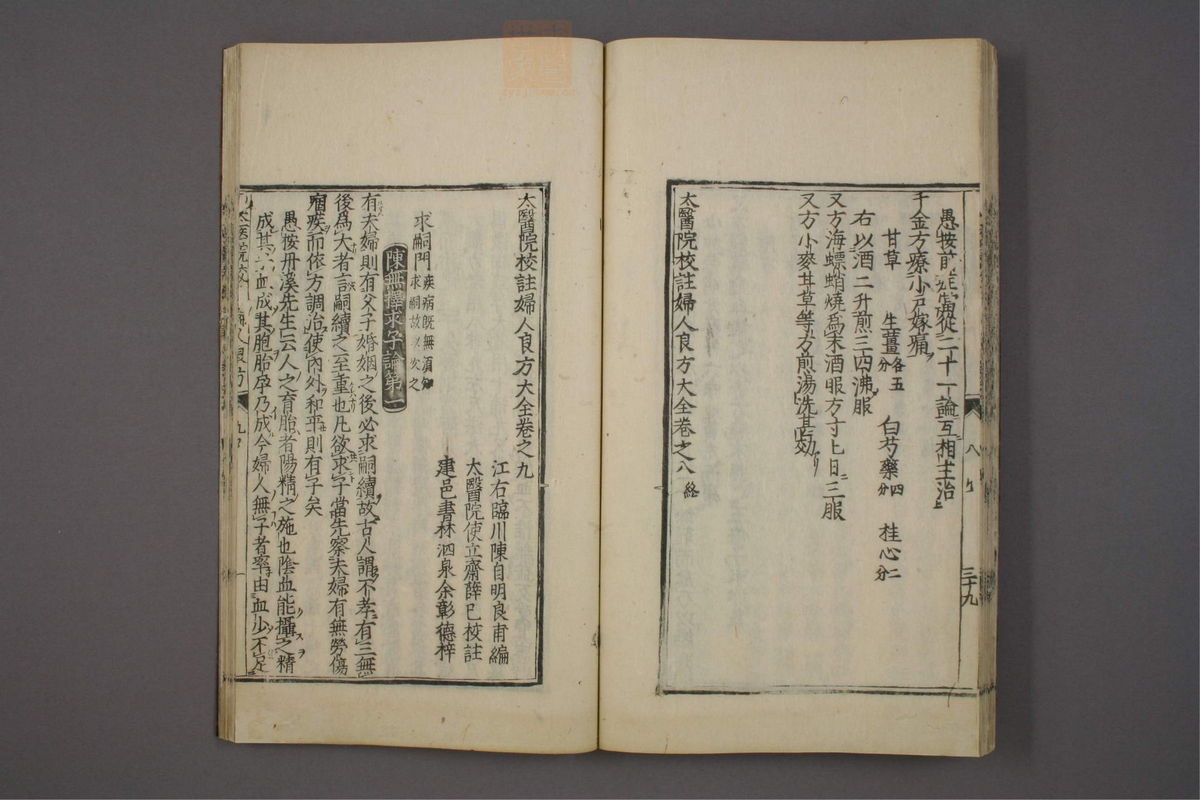 愚按前症當從二十一論互相主治
千金方療小戶嫁痛
甘草 生薑各五分 白芍藥四分 桂心二分
右以酒二升煎三四沸服
又方海螵蛸燒為末酒服方寸匕日三服
又方小麥甘草等分煎湯洗甚效
太醫院校註婦人良方大全卷之八終
八
三十九
太醫院校註婦人良方大全卷之九
江右臨川陳自明良甫編
太醫院使立齋薛已校註
建邑書林泗泉余彰德梓
求嗣門疾病既無須知求嗣故以次之
陳無擇求子論第一
有夫婦則有父子婚姻之後必求嗣續故古人謂不孝有三無
後為大者言嗣續之至重也凡欲求子當先察夫婦有無勞傷
痼疾而依方調治使內外和平則有子矣
愚按丹溪先生云人之育胎者陽精之施也陰血能攝之精
成其子血成其胞胎孕乃成今婦人無子者率由血少不足